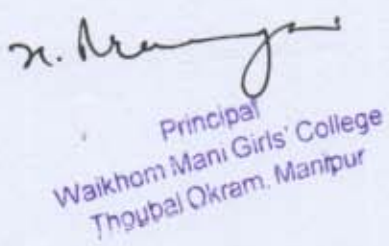 Principal
Waikhom Mani Girls' College
Thoubal Okram, Manipur